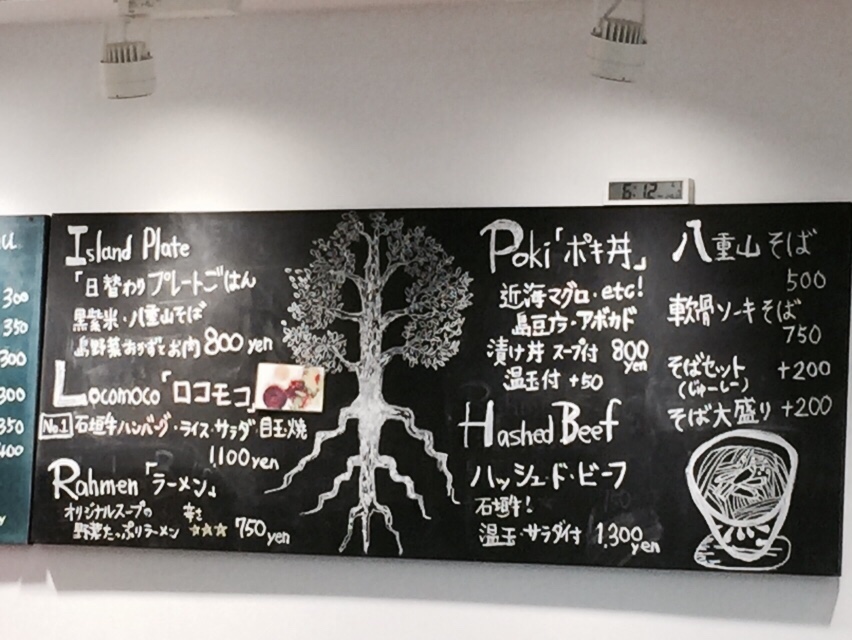 300
350
300
300
350
400
Island Plate
「日替わりプレートごはん
黒紫米・八重山そば
島野菜おかずとお肉 800 yen
Locomoco「ロコモコ」
No.1 石垣牛ハンバーグ・ライス・サラダ 目玉焼
1,100yen
Rahmen「ラーメン」
オリジナルスープの 辛さ
野菜たっぷりラーメン ☆☆☆ 750yen
6:12
Poki「ポキ丼」
近海マグロ・etc!
島豆腐・アボカド
漬け丼 スープ付 800yen
温玉付 +50
Hashed Beef
ハッシュド・ビーフ
石垣牛!
温玉・サラダ付 1,300yen
八重山そば
500
軟骨ソーキそば
750
そばセット +200
(じゅーしー)
そば大盛り +200